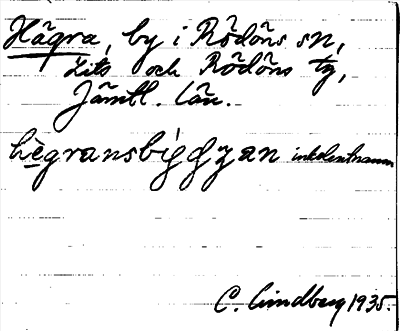 Hägra, by i Rödöns sn,
Lits och Rödöns tg,
Jämtl. län.
hègransbýgdzan inkolentnamn
C. Lindberg 1935.